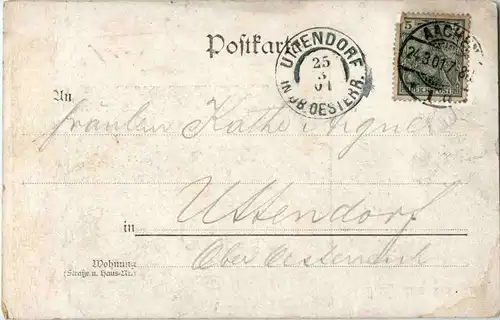 Postkarte
UTTENDORF
25
3
01
IN OB. OESTERR.
5
AACHEN
24.3.01.7-8
1
An
Fräulein Käthe Aigner
in
Uttendorf
Ober Oesterreich
Wohnung
(Straße u. Haus-Nr.)